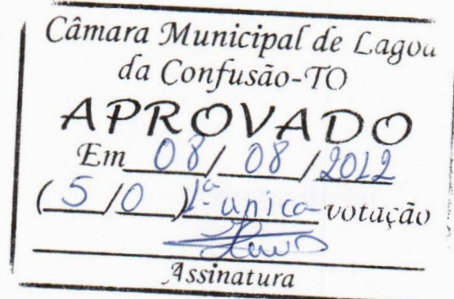 Câmara Municipal de Lagoa
da Confusão-TO
APROVADO
Em 08/ 08 /2012
( 5 /0 ) 1ª unica votação
Assinatura